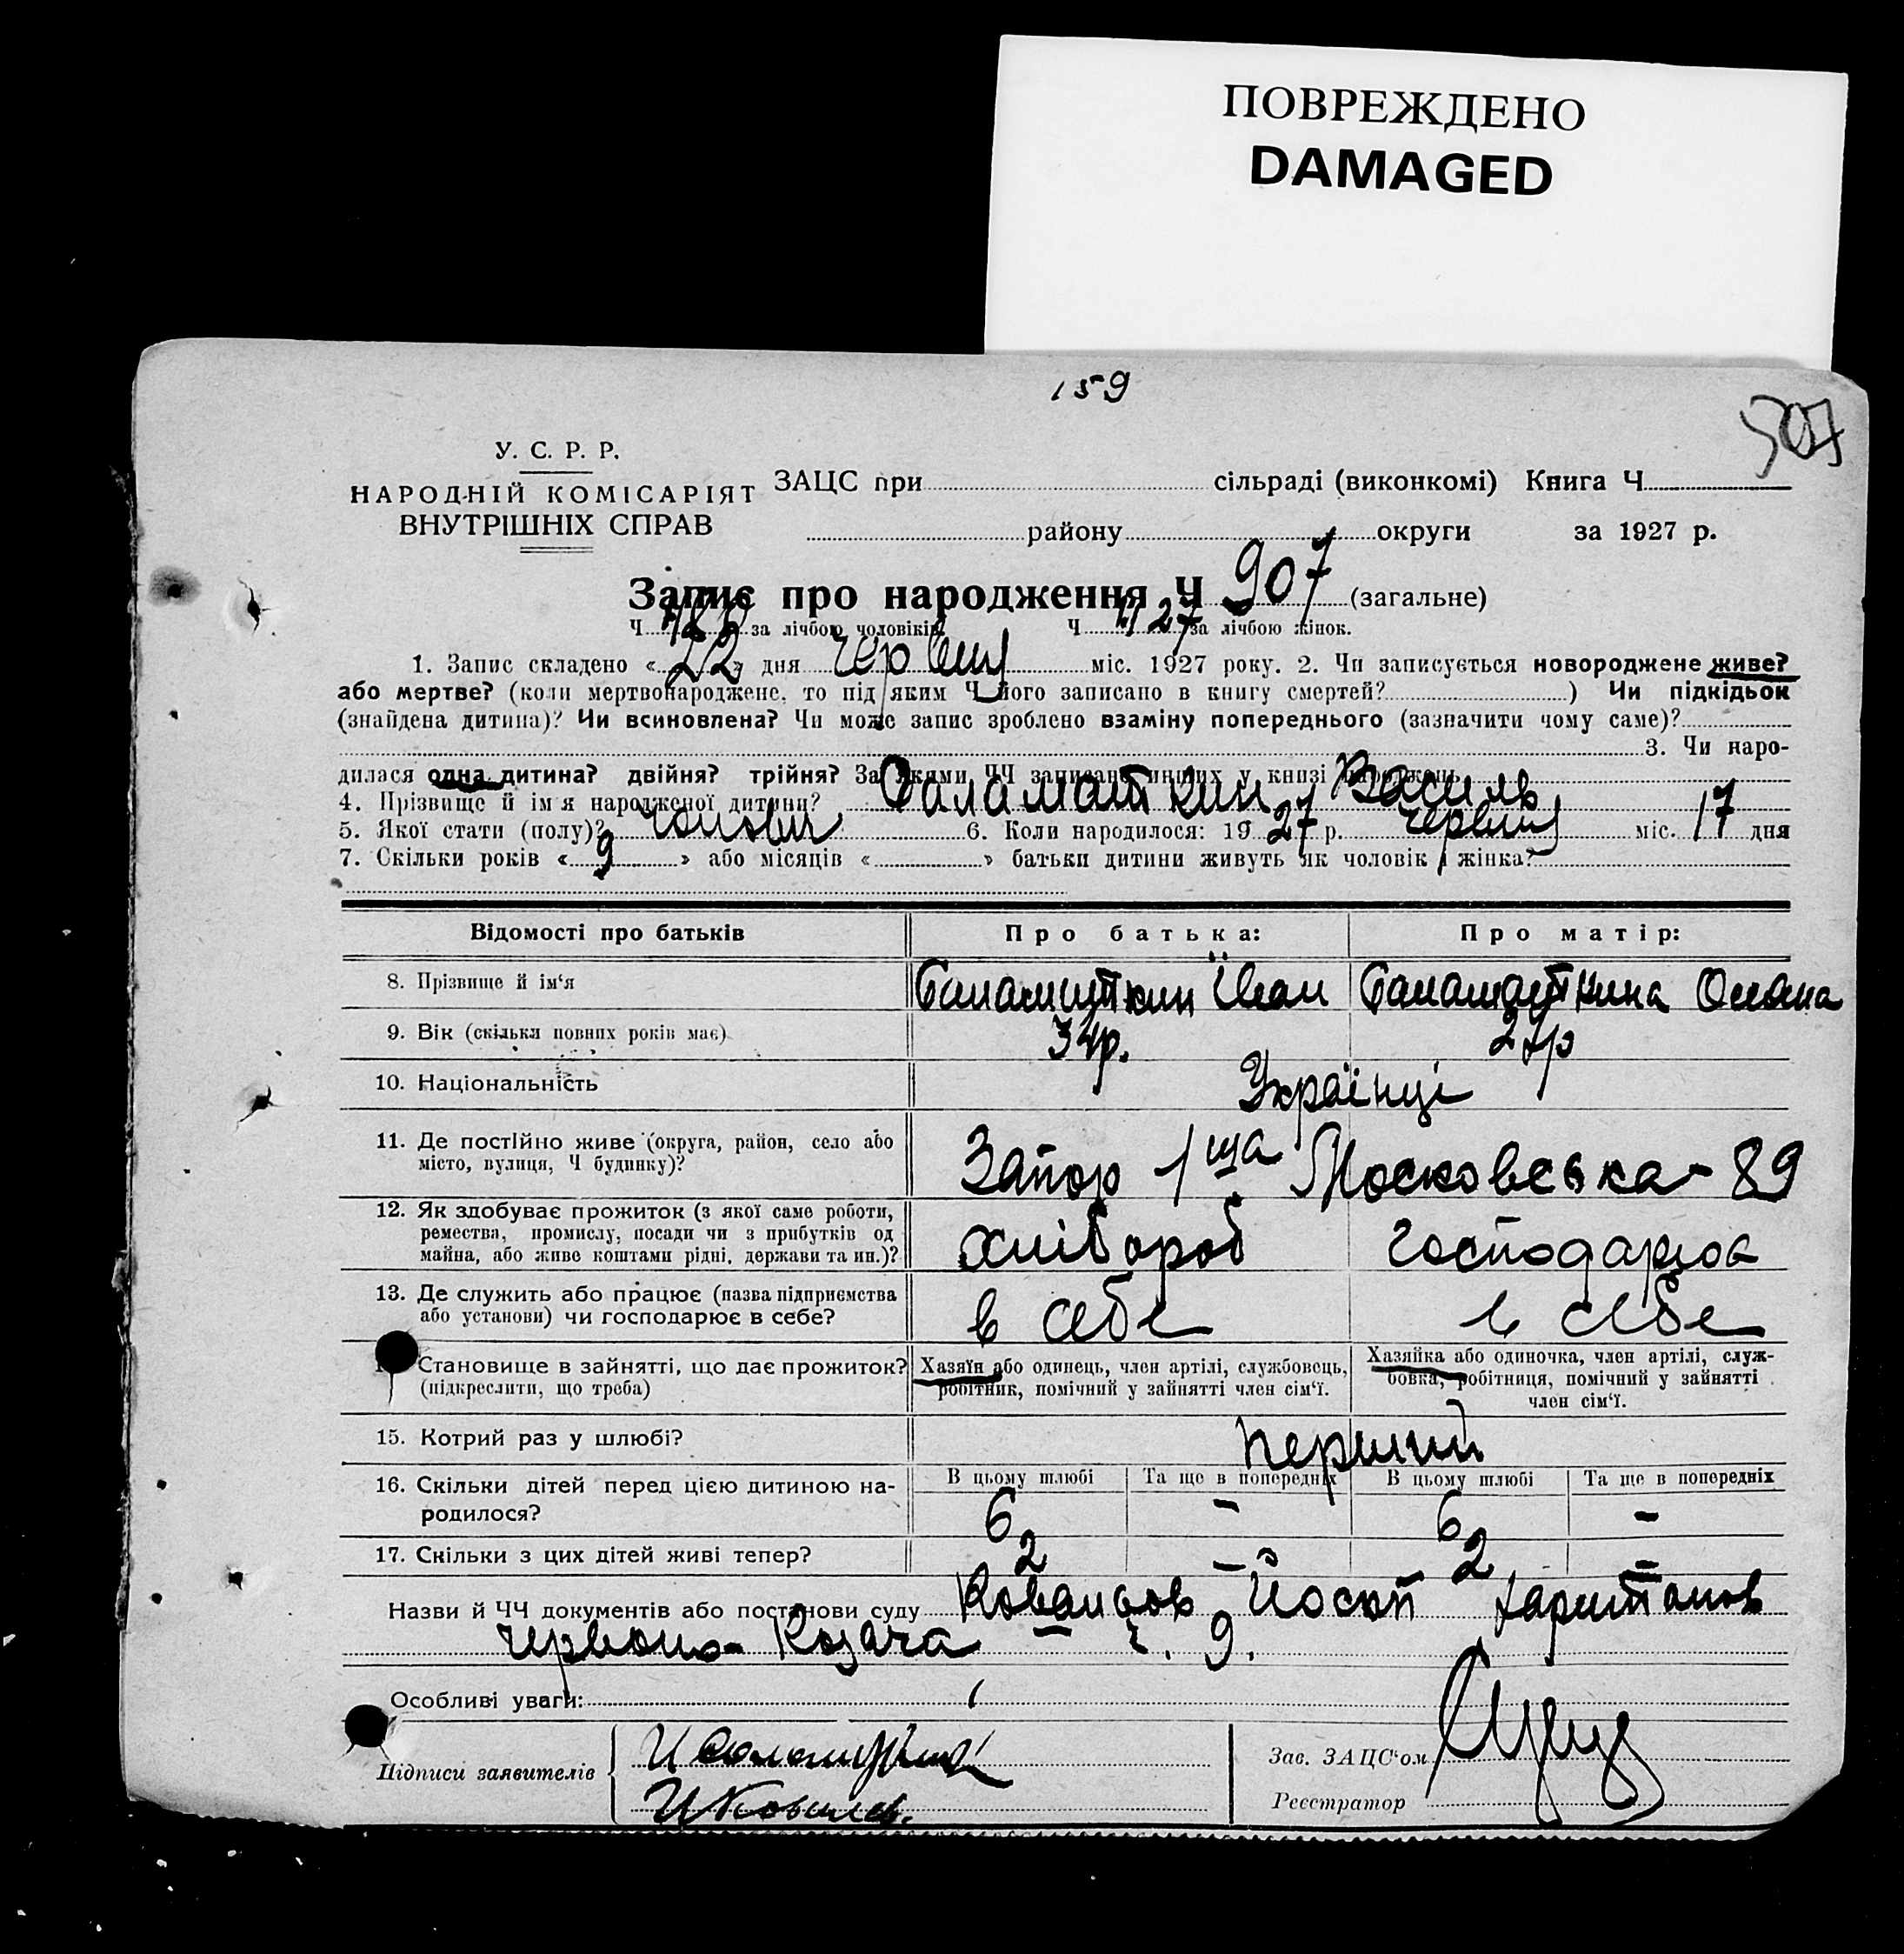 ПОВРЕЖДЕНО
DAMAGED
159
907
У. С. Р. Р.
НАРОДНІЙ КОМІСАРІЯТ
ВНУТРІШНІХ СПРАВ
ЗАЦС при сільраді (виконкомі) Книга Ч.
району округи за 1927 р.
Запис про народження Ч 907 (загальне)
Ч за лічбою чоловіків. Ч за лічбою жінок.
1. Запис складено « 22 » дня червня міс. 1927 року. 2. Чи записується новороджене живе?
або мертве? (коли мертвонароджене, то під яким Ч його записано в книгу смертей? ) Чи підкідьок
(знайдена дитина)? Чи всиновлена? Чи може запис зроблено взаміну попереднього (зазначити чому саме)?
3. Чи наро-
дилася одна дитина? двійня? трійня? За якими ЧЧ записано инших у книзі народжень
4. Прізвище й ім'я народженої дитини? Саламаткин Василь
5. Якої стати (полу)? чоловіч 6. Коли народилося: 1927 р. червня міс. 17 дня
7. Скільки років « 9 » або місяців « » батьки дитини живуть як чоловік і жінка?
Відомості про батьків Про батька: Про матір:
8. Прізвище й ім'я Саламаткин Іван Саламаткина Оксана
9. Вік (скільки повних років має) 34р. 27р
10. Національність Українці
11. Де постійно живе (округа, район, село або
місто, вулиця, Ч будинку)? Запор 1ша Московська - 89
12. Як здобуває прожиток (з якої саме роботи,
ремества, промислу, посади чи з прибутків од
майна, або живе коштами рідні, держави та ин.)? хлібороб господарює
13. Де служить або працює (назва підприємства
або установи) чи господарює в себе? в себе в себе
Становище в зайнятті, що дає прожиток?
(підкреслити, що треба)
Хазяїн або одинець, член артілі, службовець,
робітник, помічний у зайнятті член сім'ї.
Хазяйка або одиночка, член артілі, служ-
бовка, робітниця, помічний у зайнятті
член сім'ї.
15. Котрий раз у шлюбі? перший
16. Скільки дітей перед цією дитиною на-
родилося?
В цьому шлюбі Та ще в попередніх В цьому шлюбі Та ще в попередніх
6 - 6 -
17. Скільки з цих дітей живі тепер? 2 - 2 -
Назви й ЧЧ документів або постанови суду Ковальов Йосип
Червоно-Козача - ч. 9.
Особливі уваги:
Підписи заявителів
Зав. ЗАЦС'ом
Реєстратор